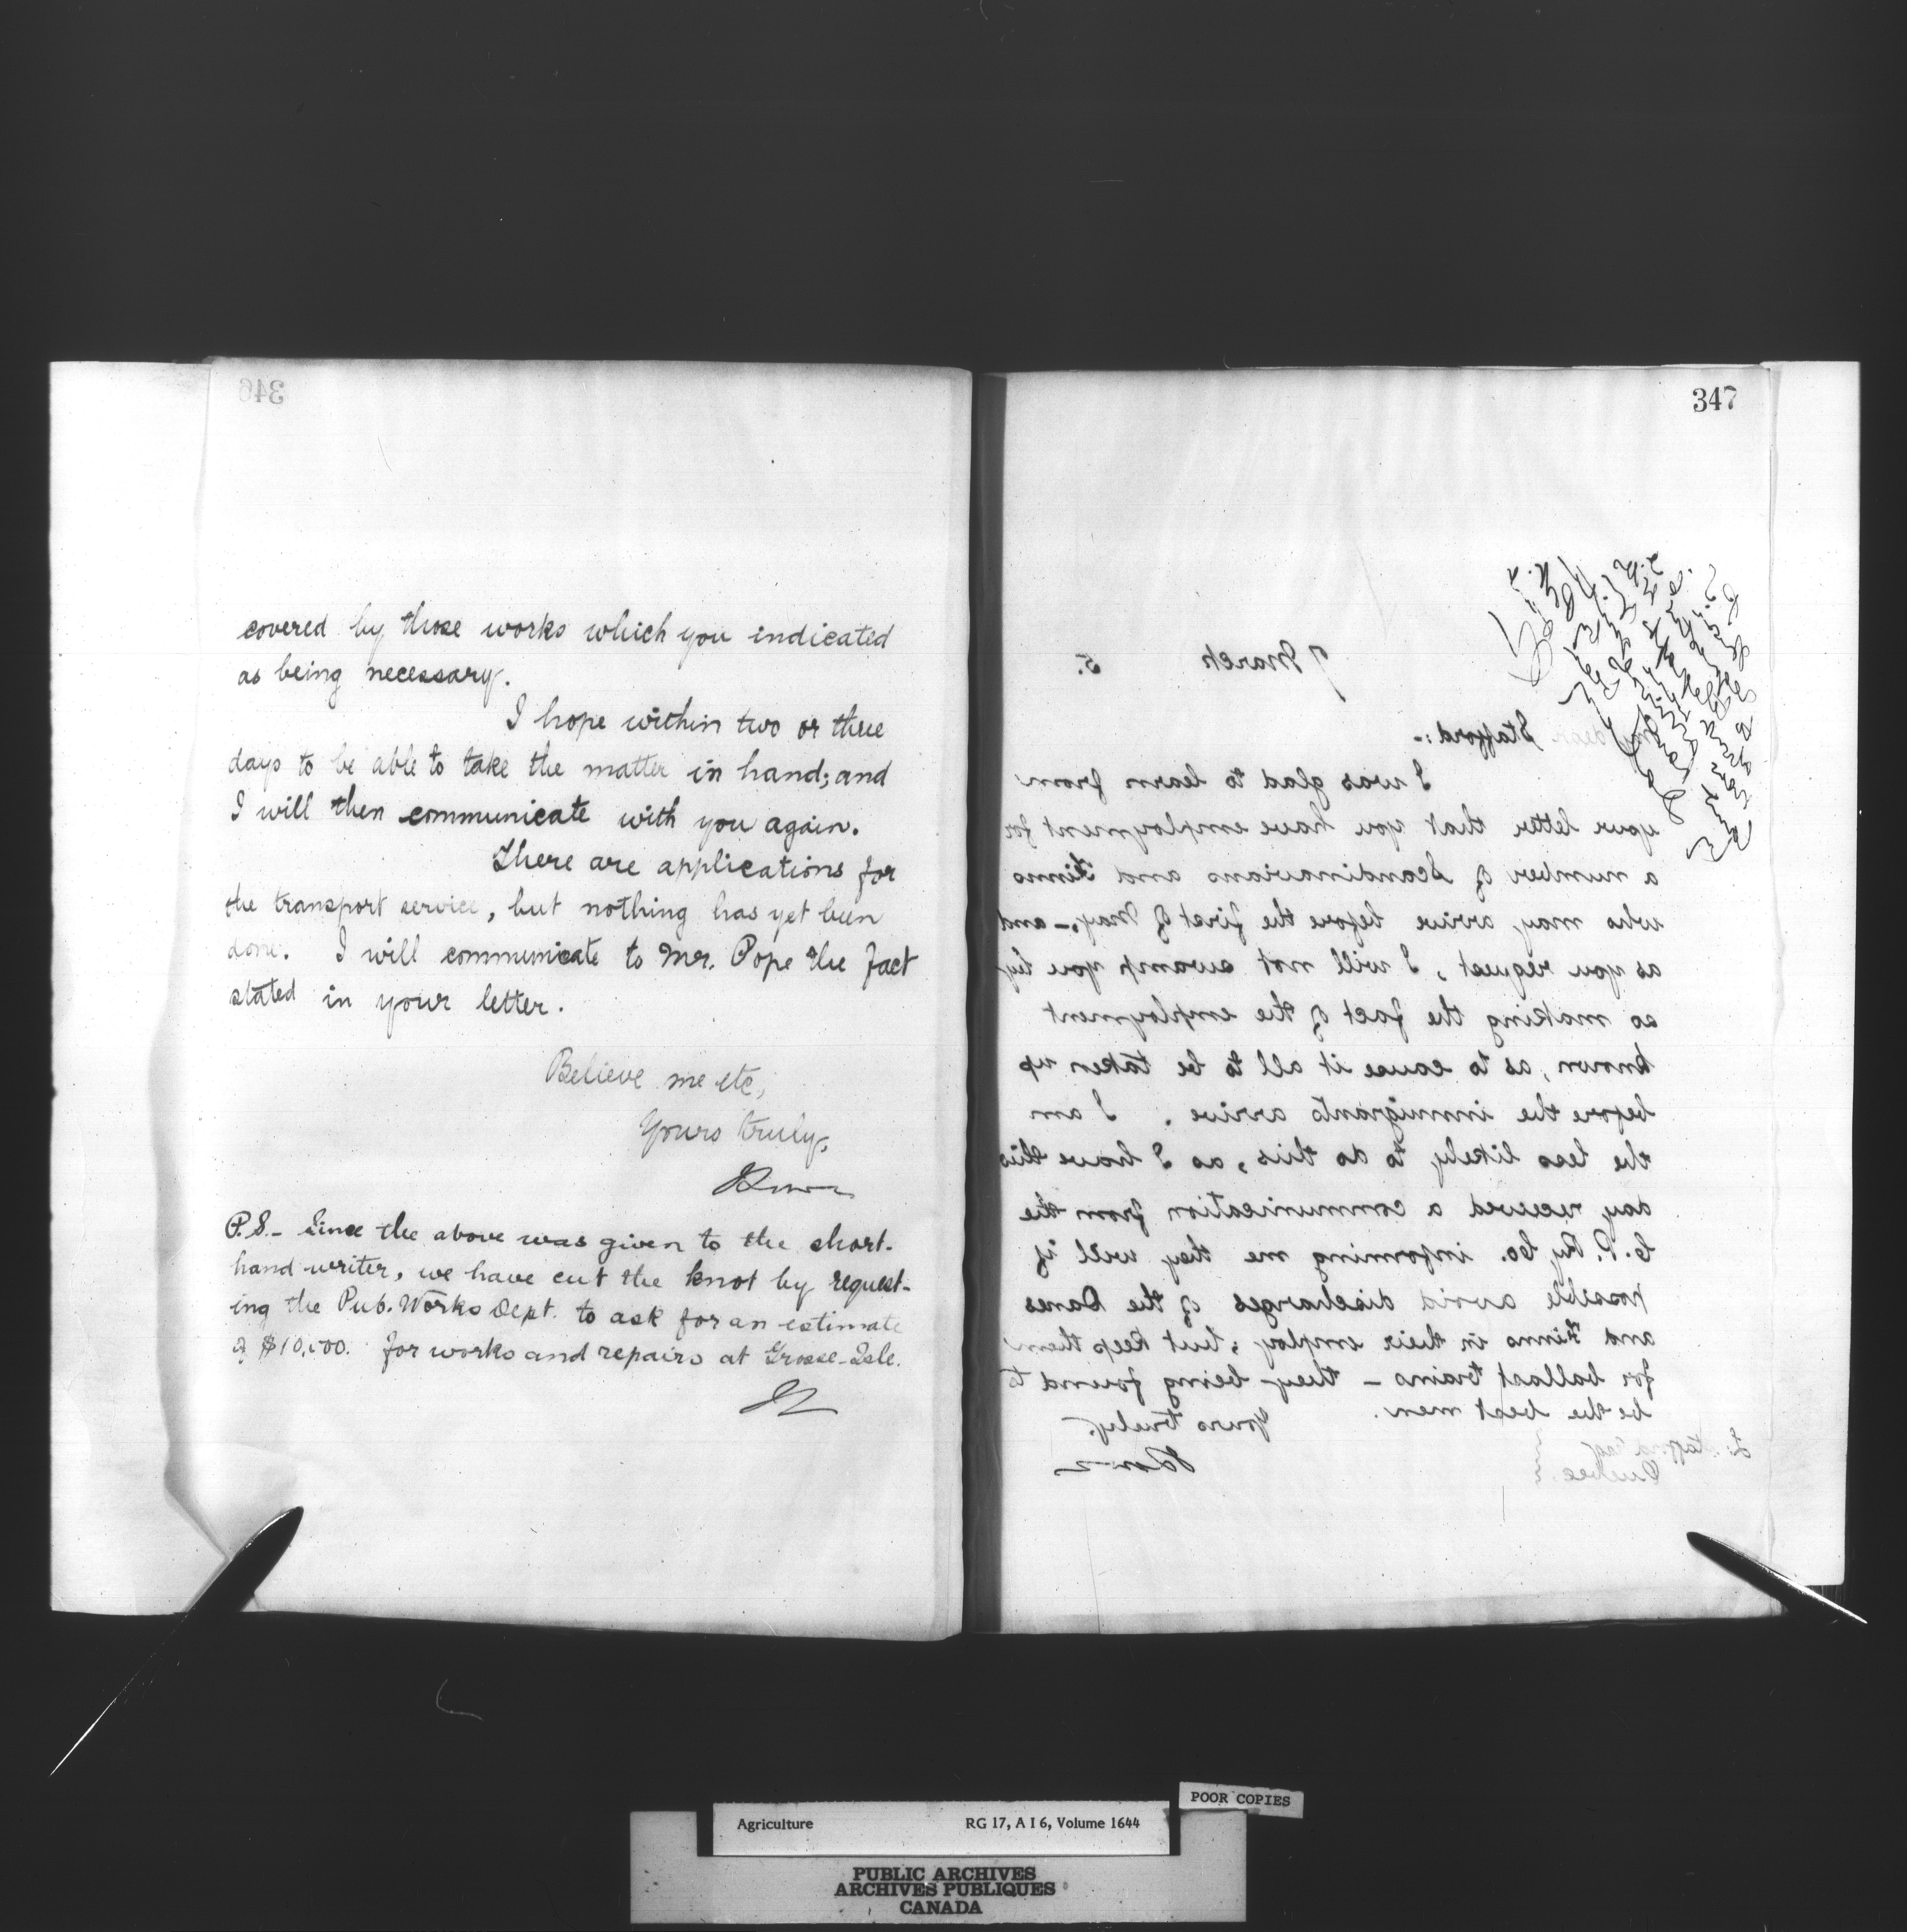 346
covered by those works which you indicated
as being necessary.
I hope within two or three
days to be able to take the matter in hand; and
I will then communicate with you again.
There are applications for
the transport service, but nothing has yet been
done. I will communicate to Mr. Pope the fact
stated in your letter.
Believe me etc,
Yours truly,
P.S. - Since the above was given to the short-
hand writer, we have cut the knot by request-
ing the Pub. Works Dept. to ask for an estimate
of $10,000. for works and repairs at Grosse-Isle.
347
7 March 5.
My dear Stafford:-
I was glad to learn from
your letter that you have employment for
a number of Scandinavians and Finns
who may arrive before the first of May,- and
as you request, I will not swamp you by
so making the fact of the employment
known, as to cause it all to be taken up
before the immigrants arrive. I am
the less likely to do this, as I have this
day received a communication from the
C. P. Ry Co. informing me they will if
possible avoid discharges of the Danes
and Finns in their employ; but keep them
for ballast trains - they being found to
be the best men.
Yours truly,
L. Stafford Esq
Quebec
Agriculture RG 17, A I 6, Volume 1644
POOR COPIES
PUBLIC ARCHIVES
ARCHIVES PUBLIQUES
CANADA